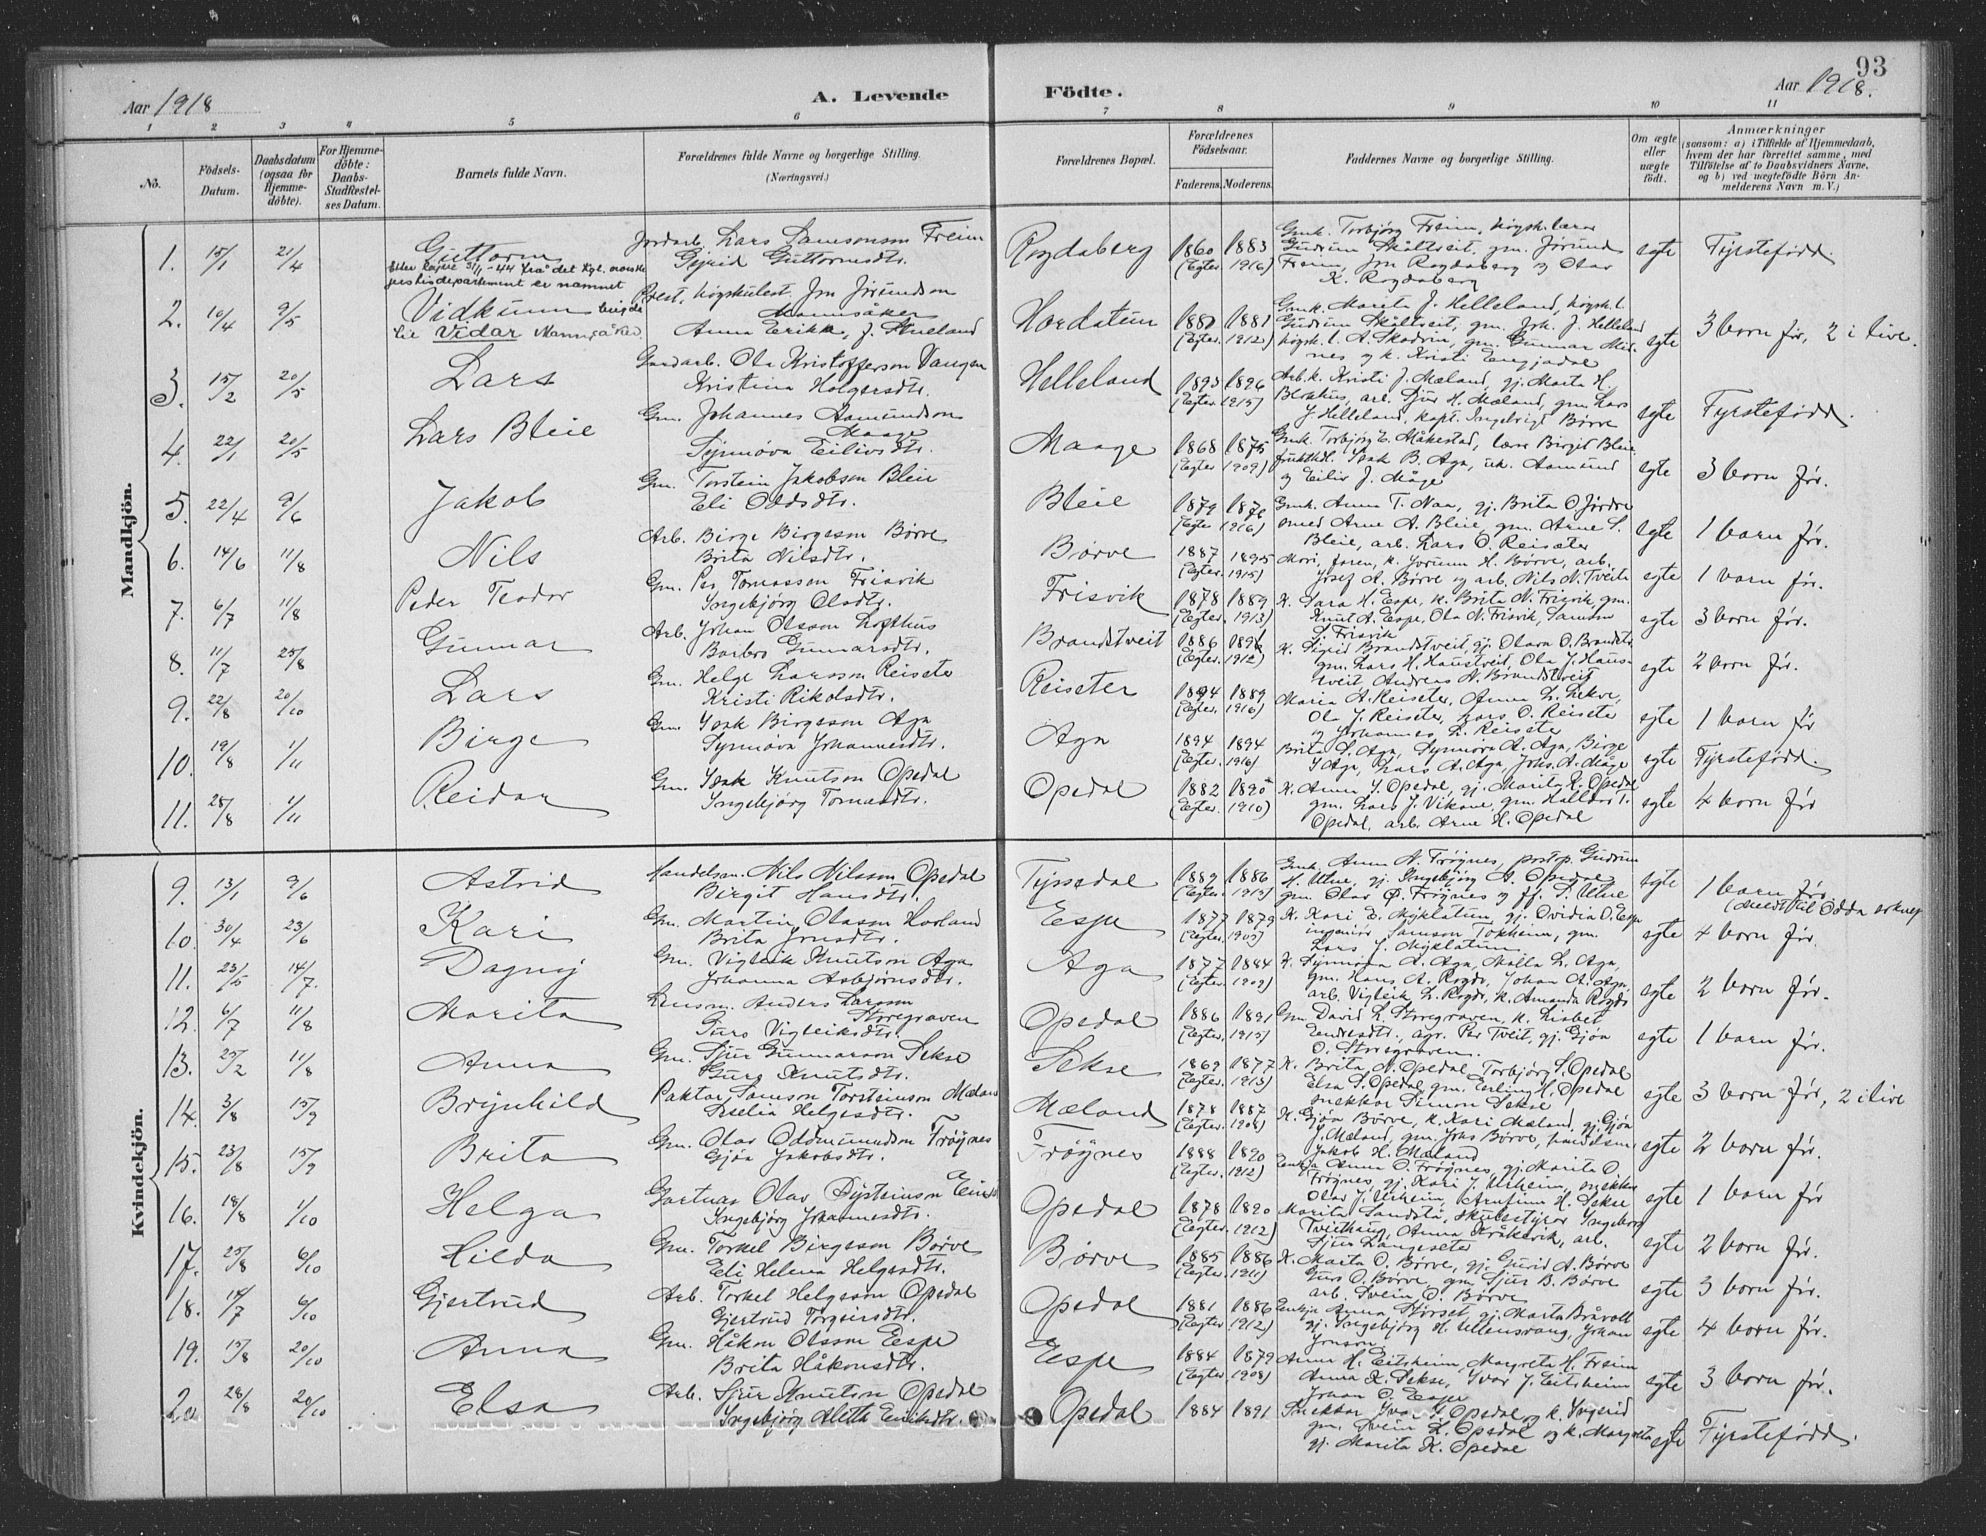 93
Aar 1918
A. Levende
Födte.
Aar 1918.
1 2 3 4 5 6 7 8 9 10 11
No.
Födsels-Datum.
Daabsdatum (ogsaa for Hjemme-döbte).
For Hjemme-döbte: Daabs-Stadfæstel-ses Datum.
Barnets fulde Navn.
Forældrenes fulde Navne og borgerlige Stilling. (Næringsvei.)
Forældrenes Bopæl.
Forældrenes Födselsaar.
Faderens. Moderens.
Faddernes Navne og borgerlige Stilling.
Om ægte eller uægte födt.
Anmærkninger
(saasom: a) i Tilfælde af Hjemmedaab, hvem der har forrettet samme, med Tilföielse af to Daabsvidners Navne, og b) ved uægtefödte Börn Anmelderens Navn m. V.)
Mandkjön.
1. 15/1 21/4 Guttorm
Jordarb. Lars Samsonson Freim
Gyrid Guttormsdtr.
Rogdaberg 1860 1883 (Egter. 1916)
Gmk. Torbjørg Freim, høgsk.lærar
Gudrun Skåltveit, gm. Jørund
Freim, Jon Rogdaberg og Olav
K. Rogdaberg
egte Fyrstefødd.
Etter løyve 31/1-44 frå det kgl. norske
justisdepartement er namnet
2. 10/4 9/5 Vidkunn brigda
til Vidar Mannsåker.
Prest, høgskulest. Jon Jørundson
Mannsåker
Anna Erika, f. Stueland
Hordatun 1880 1881 (Egter. 1912)
Gmk. Marita J. Helleland, høgsk.l.
Gudrun Skåltveit, gm. Joh. J. Helleland
egte 3 born før, 2 i live.
3. 15/2 20/5 Lars
Gardarb. Ola Kristofferson Vangen
Kristina Holgersdtr.
Helleland 1893 1896 (Egter. 1915)
Arb.k. Kristi J. Mæland, gj. Marta H.
J. Helleland, kapt. Ingebrigt Børve
egte Fyrstefødd.
4. 22/1 20/5 Lars Bleie
Gm. Johannes Aamundson
Maage
Synnøva Eilivsdtr.
Maage 1868 1875 (Egter. 1909)
Gmk. Torbjørg E. Måkestad, lærar Birgit Bleie
frukthdl. Isak B. Aga, uk. Aamund
og Eiliv J. Måge
egte 3 born før.
5. 22/4 9/6 Jakob
Gm. Torstein Jakobson Bleie
Eli Oldsdtr.
Bleie 1879 1876 (Egte 1916)
Gmk. Anna T. Naa, gj. Brita O. Jördre
smed Arne A. Bleie, gm. Arne S.
Bleie, arb. Lars O. Reisæter
egte 1 barn før.
6. 14/6 11/8 Nils
Arb. Birge Birgeson Børve
Brita Nilsdtr.
Børve 1887 1895 (Egter. 1915)
Josef A. Børve og arb. Nils N. Tveite
egte 1 barn før.
7. 6/7 11/8 Peder Teodor
Gm. Per Tomasson Frisvik
Ingebjørg Olsdtr.
Frisvik 1878 1889 (Egter. 1913)
K. Sara H. Espe, k. Brita N. Frisvik, gm.
Knut A. Espe, Ola N. Frisvik, Samson
S. Frisvik
egte 3 born før.
8. 11/7 25/8 Gunnar
Arb. Johan Olsson Lofthus
Barbro Gunnarsdtr.
Brandstveit 1886 1896 (Egter. 1912)
K. Sigrid Brandstveit, gj. Olava O. Brandstv.
gm. Lars H. Haustveit, Ola J. Haus-
tveit Andreas N. Brandstveit
egte 2 born før.
9. 22/8 20/10 Lars
Gm. Helge Larsson Reiseter
Kristi Rikolsdtr.
Reiseter 1894 1889 (Egter. 1916)
Maria A. Reiseter, Anna L. Lekve,
Ola J. Reiseter, Lars O. Reiseter
og Johannes L. Reiseter
egte 1 born før
10. 19/8 1/11 Birge
Gm. Isak Birgeson Aga
Synnøva Johannesdtr.
Aga 1894 1894 (Egter. 1916)
Brita S. Aga, Synnøva A. Aga, Birge
I. Aga, Lars A. Aga, Johs. A. Måge
egte Fyrstefødd.
11. 28/8 1/11 Reidar
Gm. Isak Knutson Opedal
Ingebjørg Tomasdtr.
Opedal 1882 1890 (Egter. 1910)
K. Anna I. Opedal, gj. Marita K. Opedal
gm. Lars J. Vikane, gm. Halldor T.
Opedal, arb. Arne H. Opedal
egte 4 born før
Kvindekjön.
9. 13/1 9/6 Astrid
Handelsm. Nils Nilsson Opedal
Birgit Hansdtr.
Tyssedal 1889 1886 (Egter. 1915)
Gmk. Anna N. Trøynes, postp. Gudrun
H. Utne, gj. Ingebjørg A. Opedal
egte 1 barn før
(Meldt til Odda sokn
10. 30/4 23/6 Kari
Gm. Martin Olsson Hovland
Brita Jonsdtr.
Espe 1877 1879 (Egter. 1905)
K. Kari D. Myklatun, gj. Ovidia O. Espe
ingeniør Samson Tokheim, gm.
Lars J. Myklatun
egte 4 born før.
11. 23/5 14/7. Dagny
Gm. Vigleik Knutson Aga
Johanna Asbjørnsdtr.
Aga 1877 1884 (Egter. 1909)
K. Synnøva A. Aga, Malla L. Aga,
gm. Hans A. Rogde, Johan A. Aga,
arb. Vigleik L. Rogde, k. Amanda Rogde
egte 2 born før.
12. 6/7 11/8 Marita
Lensm. Anders Larsson
Storegraven
Guro Vigleiksdtr.
Opedal 1886 1891 (Egter. 1915)
Gm. David L. Storegraven, k. Lisbet
Endresdtr., agr. Per Tveit, gj. Gjøa
O. Storegraven.
egte 1 born før.
13. 25/2 11/8 Anna
Gm. Sjur Gunnarson Sekse
Guro Knutsdtr.
Sekse 1869 1877 (Egter. 1913)
K. Brita A. Opedal, Torbjørg S. Opedal
Elsa S. Opedal, gm. Erling H. Opedal
snekkar Simon Sekse
egte 3 born før, 2 i live
14. 3/8 15/9 Brynhild
Paktar Samson Torsteinson Mæland
Seselia Helgesdtr.
Mæland 1878 1887 (Egter. 1908)
K. Gjøa Børve, k. Kari Mæland, gj. Gjøa
J. Mæland, gm. Johs Børve, handelsm.
Jakob H. Mæland
egte 2 born før.
15. 23/8 15/9 Brita
Gm. Olav Oddmundson Trøynes
Gjøa Jakobsdtr.
Trøynes 1888 1890 (Egter. 1912)
Enkja Anna O. Trøynes, gj. Marita O.
Trøynes, gj. Kari J. Urheim, snekkar
Olav J. Urheim,
egte 1 born før
16. 18/8 1/10 Helga
Gartnar Olav Øysteinson Eines
Ingebjørg Johannesdtr.
Opedal 1878 1890 (Egter. 1912)
egte 2 born før.
17. 25/8 6/10 Hilda
Gm. Torkel Birgeson Børve
Eli Helena Helgesdtr.
Børve 1885 1886 (Egter. 1911)
K. Marita O. Børve, gj. Gurid A. Børve
Guro O. Børve, gm. Sjur B. Børve
arb. Svein O. Børve
egte 3 born før.
18. 14/7 6/10 Gjertrud
Arb. Torkel Helgeson Opedal
Gjertrud Torgeirsdtr.
Opedal 1881 1886 (Egter. 1912)
Enkja Anna Størset, gj. Marta Bråvoll
gj. Ingebjørg H. Ullensvang, Johan
Jonson
egte 4 born før.
19. 15/8 20/10 Anna
Gm. Håkon Olsson Espe
Brita Håkonsdtr.
Espe 1884 1879 (Egter. 1908)
Anna H. Eitsheim, Margreta H. Freim
Anna K. Sekse, Ivar J. Eitsheim
Johan O. Espe
egte 3 born før.
20 28/8 20/10 Elsa
Arb. Sjur Knutson Opedal
Ingebjørg Aletta Eriksdtr.
Opedal 1884 1891
Snekkar Ivar K. Opedal, k. Ingerid
gm. Svein K. Opedal og k. Margreta
gj. Marita K. Opedal
egte Fyrstefødd.